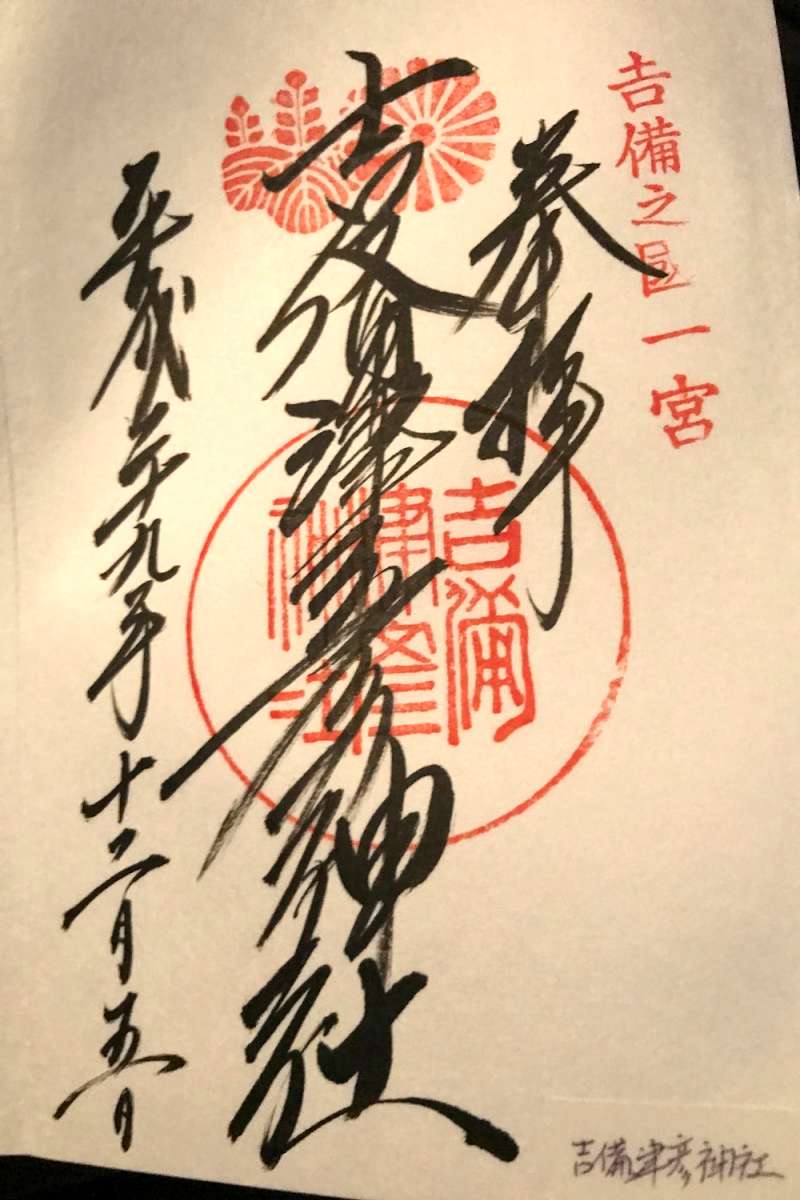 吉備之國一宮
奉拝
吉備津彦神社
平成二十九年十二月五日
吉備津彦神社